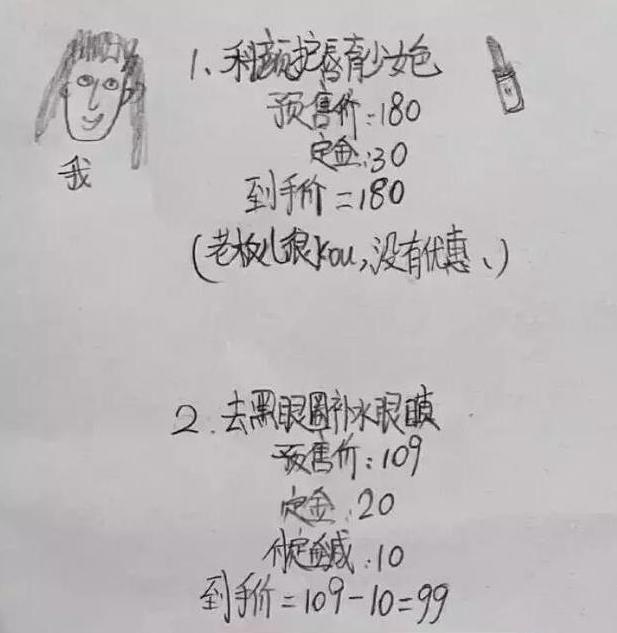 我
1、科颜护唇膏少女色
预售价:180
定金:30
到手价=180
(老板儿很kou,没有优惠、)
2.去黑眼圈补水眼膜
预售价:109
定金:20
付定金减:10
到手价=109-10=99